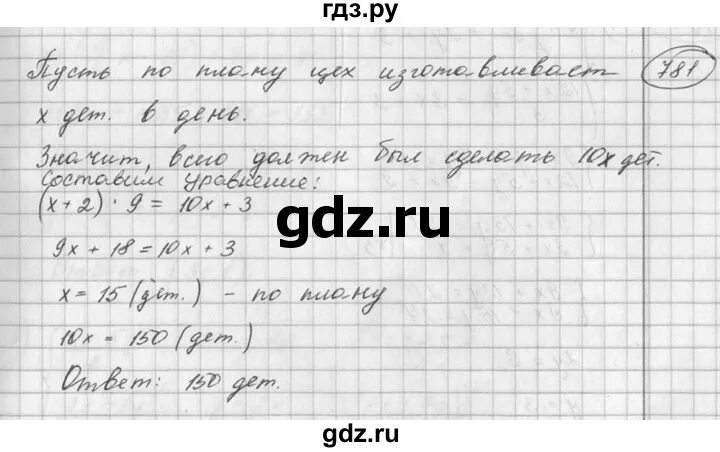 гдз.ру
Пусть по плану цех изготавливает 781
x дет. в день.
Значит, всего должен был сделать 10x дет.
Составим уравнение:
(x + 2) · 9 = 10x + 3
gdz.ru
9x + 18 = 10x + 3
x = 15 (дет.) – по плану
10x = 150 (дет.)
Ответ: 150 дет.
gdz.ru